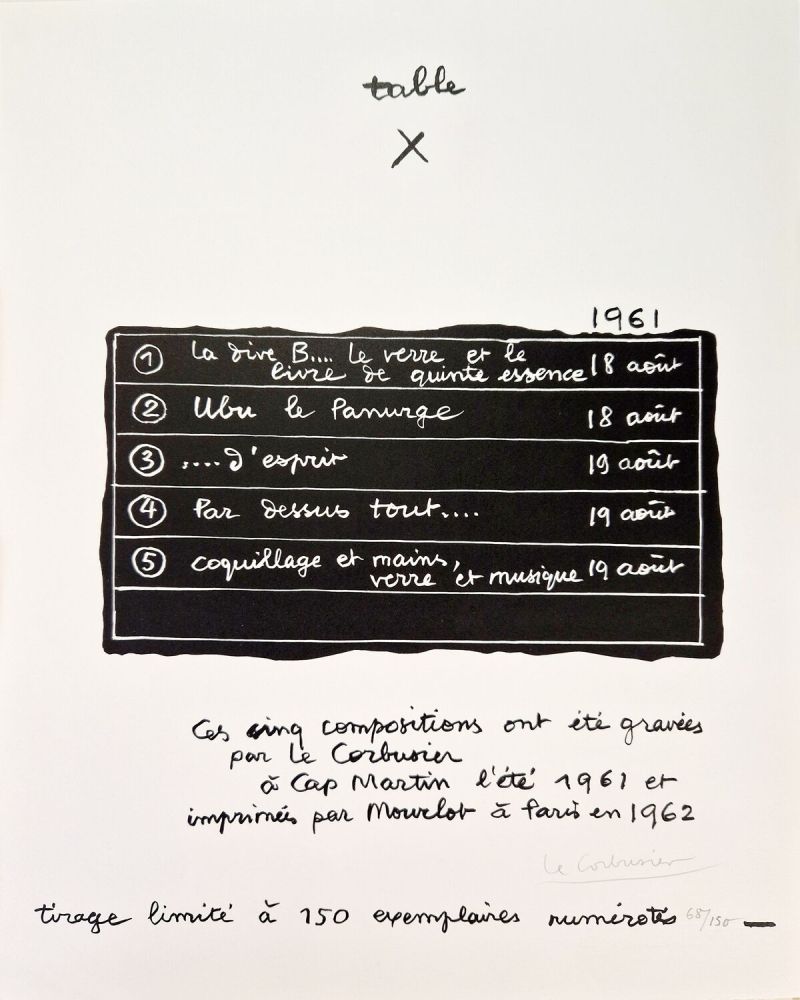 table
X
1961
1 la dive B.... le verre et le
livre de quinte essence 18 août
2 Ubu le Panurge 18 août
3 ....d'esprit 19 août
4 Par dessus tout.... 19 août
5 coquillage et mains,
verre et musique 19 août
Ces cinq compositions ont été gravées
par Le Corbusier
à Cap Martin l'été 1961 et
imprimées par Mourlot à Paris en 1962
Le Corbusier
tirage limité à 150 exemplaires numérotés 68/150 —